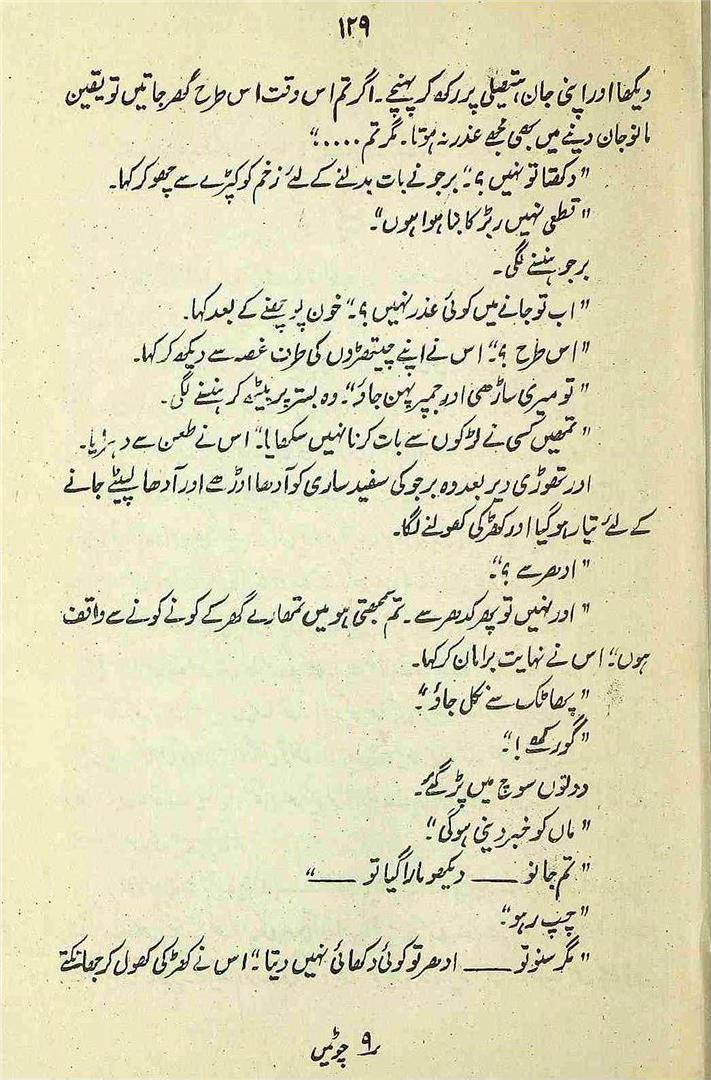 ۱۲۹
دیکھا اور اپنی جان ہتھیلی پر رکھ کر پہنچے۔ اگر تم اس وقت اس طرح گھر جاتیں تو یقین
مانو جان دینے میں بھی مجھے عذر نہ ہوتا۔ مگر تم ....."
"دکھتا تو نہیں ؟" برجو نے بات بدلنے کے لئے زخم کو کپڑے سے چھو کر کہا۔
"قطعی نہیں ربڑ کا بنا ہوا ہوں"۔
برجو ہنسنے لگی۔
"اب تو جانے میں کوئی عذر نہیں ؟" خون پونچھنے کے بعد کہا۔
"اس طرح ؟" اس نے اپنے چیتھڑوں کی طرف غصہ سے دیکھ کر کہا۔
"تو میری ساڑھی اور جمپر پہن جاؤ"۔ وہ بستر پر بیٹھ کر ہنسنے لگی۔
"تمھیں کسی نے لڑکوں سے بات کرنا نہیں سکھایا۔" اس نے طعن سے دہرایا۔
اور تھوڑی دیر بعد وہ برجو کی سفید ساری کو آدھا اوڑھے اور آدھا لپیٹے جانے
کے لئے تیار ہو گیا اور کھڑکی کھولنے لگا۔
"ادھر سے ؟"۔
"اور نہیں تو پھر کدھر سے۔ تم سمجھتی ہو میں تمھارے گھر کے کونے کونے سے واقف
ہوں"۔ اس نے نہایت برا مان کر کہا۔
"پھاٹک سے نکل جاؤ"۔
"گورکھے !"۔
دونوں سوچ میں پڑ گئے۔
"ماں کو خبر دینی ہوگی"۔
"تم جانو —— دیکھو مارا گیا تو ——"
"چپ رہو"۔
"مگر سنو تو —— ادھر تو کوئی دکھائی نہیں دیتا۔" اس نے کھڑکی کھول کر جھانکتے
۹ چوٹیں